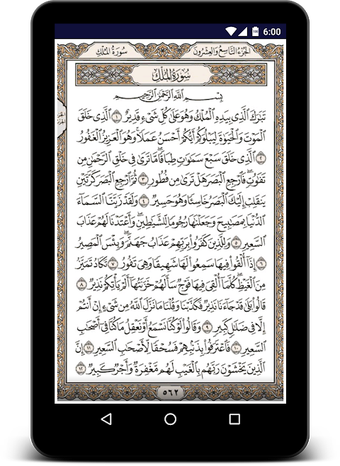 6:00
الجُزْءُ التَّاسِعُ وَالعِشْرُونَ
سُورَةُ المُلْكِ
سُورَةُ المُلْكِ
بِسْمِ اللَّهِ الرَّحْمَٰنِ الرَّحِيمِ
تَبَٰرَكَ ٱلَّذِى بِيَدِهِ ٱلْمُلْكُ وَهُوَ عَلَىٰ كُلِّ شَىْءٍ قَدِيرٌ ١ ٱلَّذِى خَلَقَ
ٱلْمَوْتَ وَٱلْحَيَوٰةَ لِيَبْلُوَكُمْ أَيُّكُمْ أَحْسَنُ عَمَلًا وَهُوَ ٱلْعَزِيزُ ٱلْغَفُورُ
٢ ٱلَّذِى خَلَقَ سَبْعَ سَمَٰوَٰتٍ طِبَاقًا مَّا تَرَىٰ فِى خَلْقِ ٱلرَّحْمَٰنِ مِن
تَفَٰوُتٍ فَٱرْجِعِ ٱلْبَصَرَ هَلْ تَرَىٰ مِن فُطُورٍ ٣ ثُمَّ ٱرْجِعِ ٱلْبَصَرَ كَرَّتَيْنِ
يَنقَلِبْ إِلَيْكَ ٱلْبَصَرُ خَاسِئًا وَهُوَ حَسِيرٌ ٤ وَلَقَدْ زَيَّنَّا ٱلسَّمَآءَ
ٱلدُّنْيَا بِمَصَٰبِيحَ وَجَعَلْنَٰهَا رُجُومًا لِّلشَّيَٰطِينِ وَأَعْتَدْنَا لَهُمْ عَذَابَ
ٱلسَّعِيرِ ٥ وَلِلَّذِينَ كَفَرُوا۟ بِرَبِّهِمْ عَذَابُ جَهَنَّمَ وَبِئْسَ ٱلْمَصِيرُ
٦ إِذَآ أُلْقُوا۟ فِيهَا سَمِعُوا۟ لَهَا شَهِيقًا وَهِىَ تَفُورُ ٧ تَكَادُ تَمَيَّزُ
مِنَ ٱلْغَيْظِ كُلَّمَآ أُلْقِىَ فِيهَا فَوْجٌ سَأَلَهُمْ خَزَنَتُهَآ أَلَمْ يَأْتِكُمْ نَذِيرٌ ٨
قَالُوا۟ بَلَىٰ قَدْ جَآءَنَا نَذِيرٌ فَكَذَّبْنَا وَقُلْنَا مَا نَزَّلَ ٱللَّهُ مِن شَىْءٍ إِنْ أَنتُمْ
إِلَّا فِى ضَلَٰلٍ كَبِيرٍ ٩ وَقَالُوا۟ لَوْ كُنَّا نَسْمَعُ أَوْ نَعْقِلُ مَا كُنَّا فِىٓ أَصْحَٰبِ
ٱلسَّعِيرِ ١٠ فَٱعْتَرَفُوا۟ بِذَنۢبِهِمْ فَسُحْقًا لِّأَصْحَٰبِ ٱلسَّعِيرِ ١١ إِنَّ
ٱلَّذِينَ يَخْشَوْنَ رَبَّهُم بِٱلْغَيْبِ لَهُم مَّغْفِرَةٌ وَأَجْرٌ كَبِيرٌ ١٢
٥٦٢